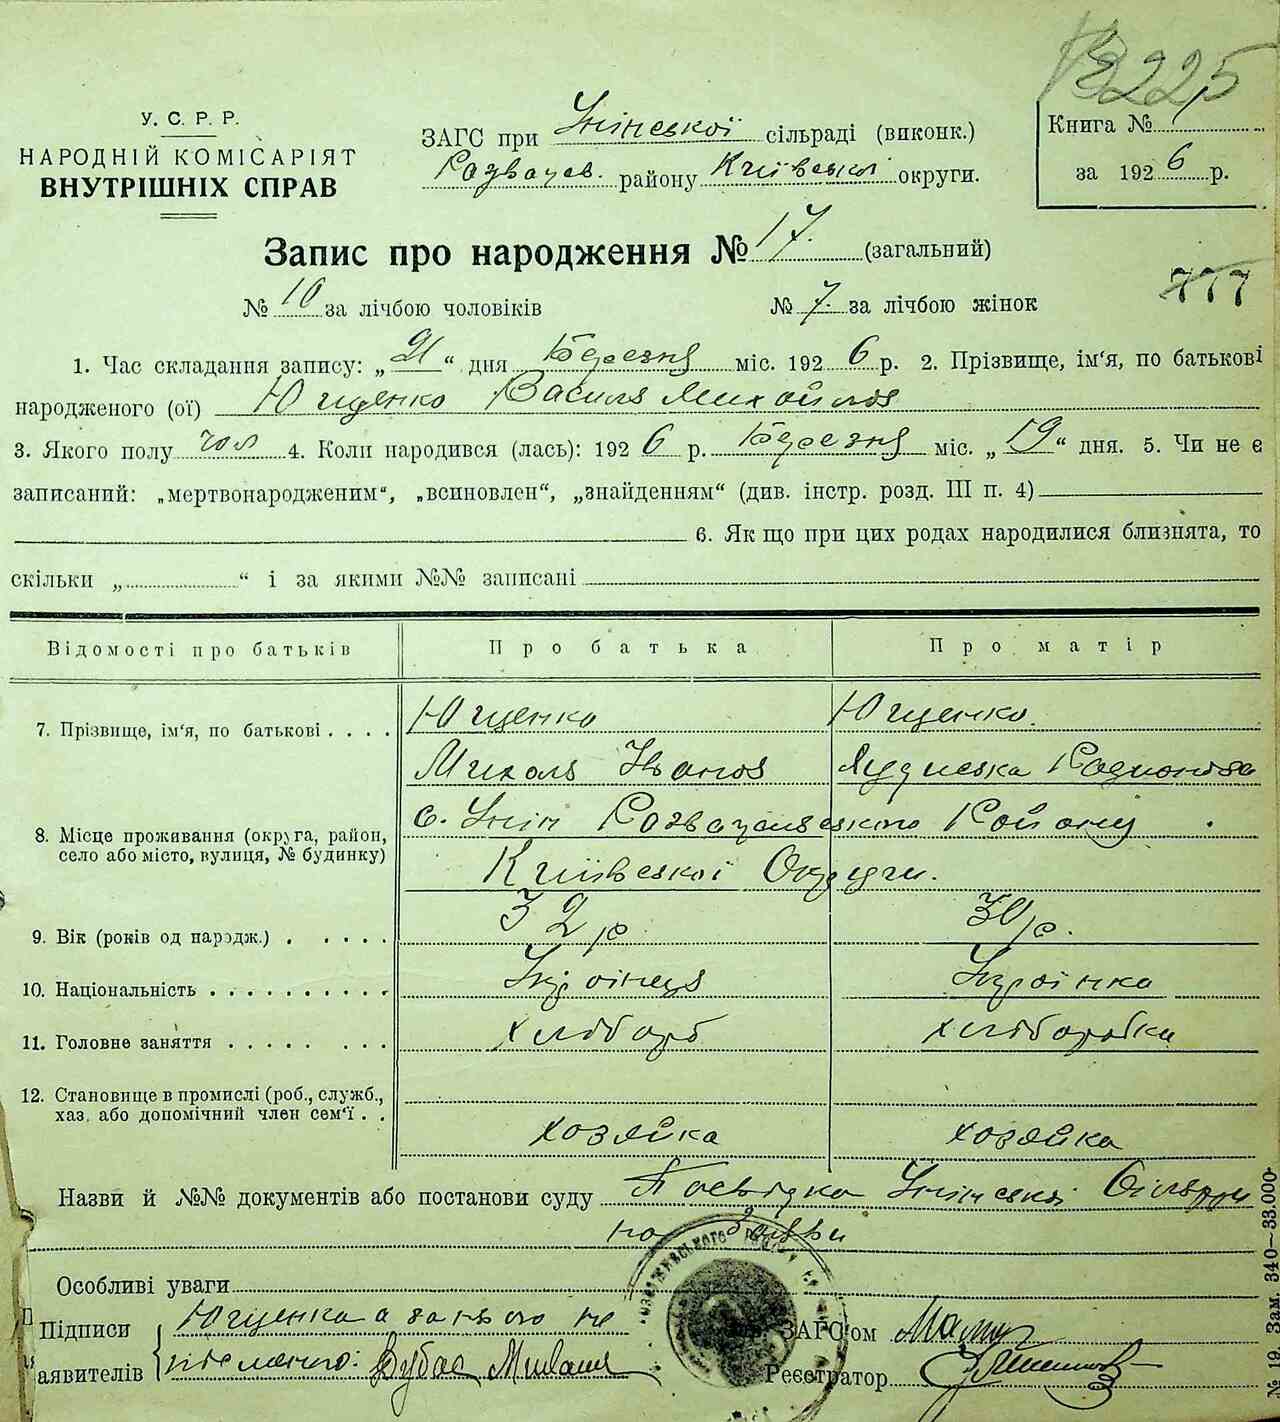 3225
У. С. Р. Р.
НАРОДНІЙ КОМІСАРІЯТ
ВНУТРІШНІХ СПРАВ
ЗАГС при Унінської сільраді (виконк.)
Розважев. району Київської округи.
Книга №
за 1926 р.
Запис про народження № 17. (загальний)
№ 10 за лічбою чоловіків № 7. за лічбою жінок
777
1. Час складання запису: „21“ дня Березня міс. 1926 р. 2. Прізвище, ім‘я, по батькові
народженого (ої) Ющенко Василь Михайлов
3. Якого полу чол 4. Коли народився (лась): 1926 р. Березня міс. „19“ дня. 5. Чи не є
записаний: „мертвонародженим“, „всиновлен“, „знайденням“ (див. інстр. розд. III п. 4)
6. Як що при цих родах народилися близнята, то
скільки „ “ і за якими №№ записані
Відомості про батьків Про батька Про матір
7. Прізвище, ім‘я, по батькові Ющенко Ющенко.
Михаль Іванов Родионова
8. Місце проживання (округа, район, село або місто, вулиця, № будинку) с. Унін Розважевського Району
Київської Округи.
9. Вік (років од нарэдж.) 32 р 30 р.
10. Національність Украінець Украінка
11. Головне заняття хлібороб хліборобка
12. Становище в промислі (роб., служб.,
хаз. або допомічний член сем‘ї хозяйка хозяйка
Назви й №№ документів або постанови суду Посвідка Унінської Сільради
Особливі уваги
Підписи Ющенка а за нього не
аявителів письменого: Бубас
ЗАГС‘ом
Реєстратор
№ 19. Зам. 340—33.000.